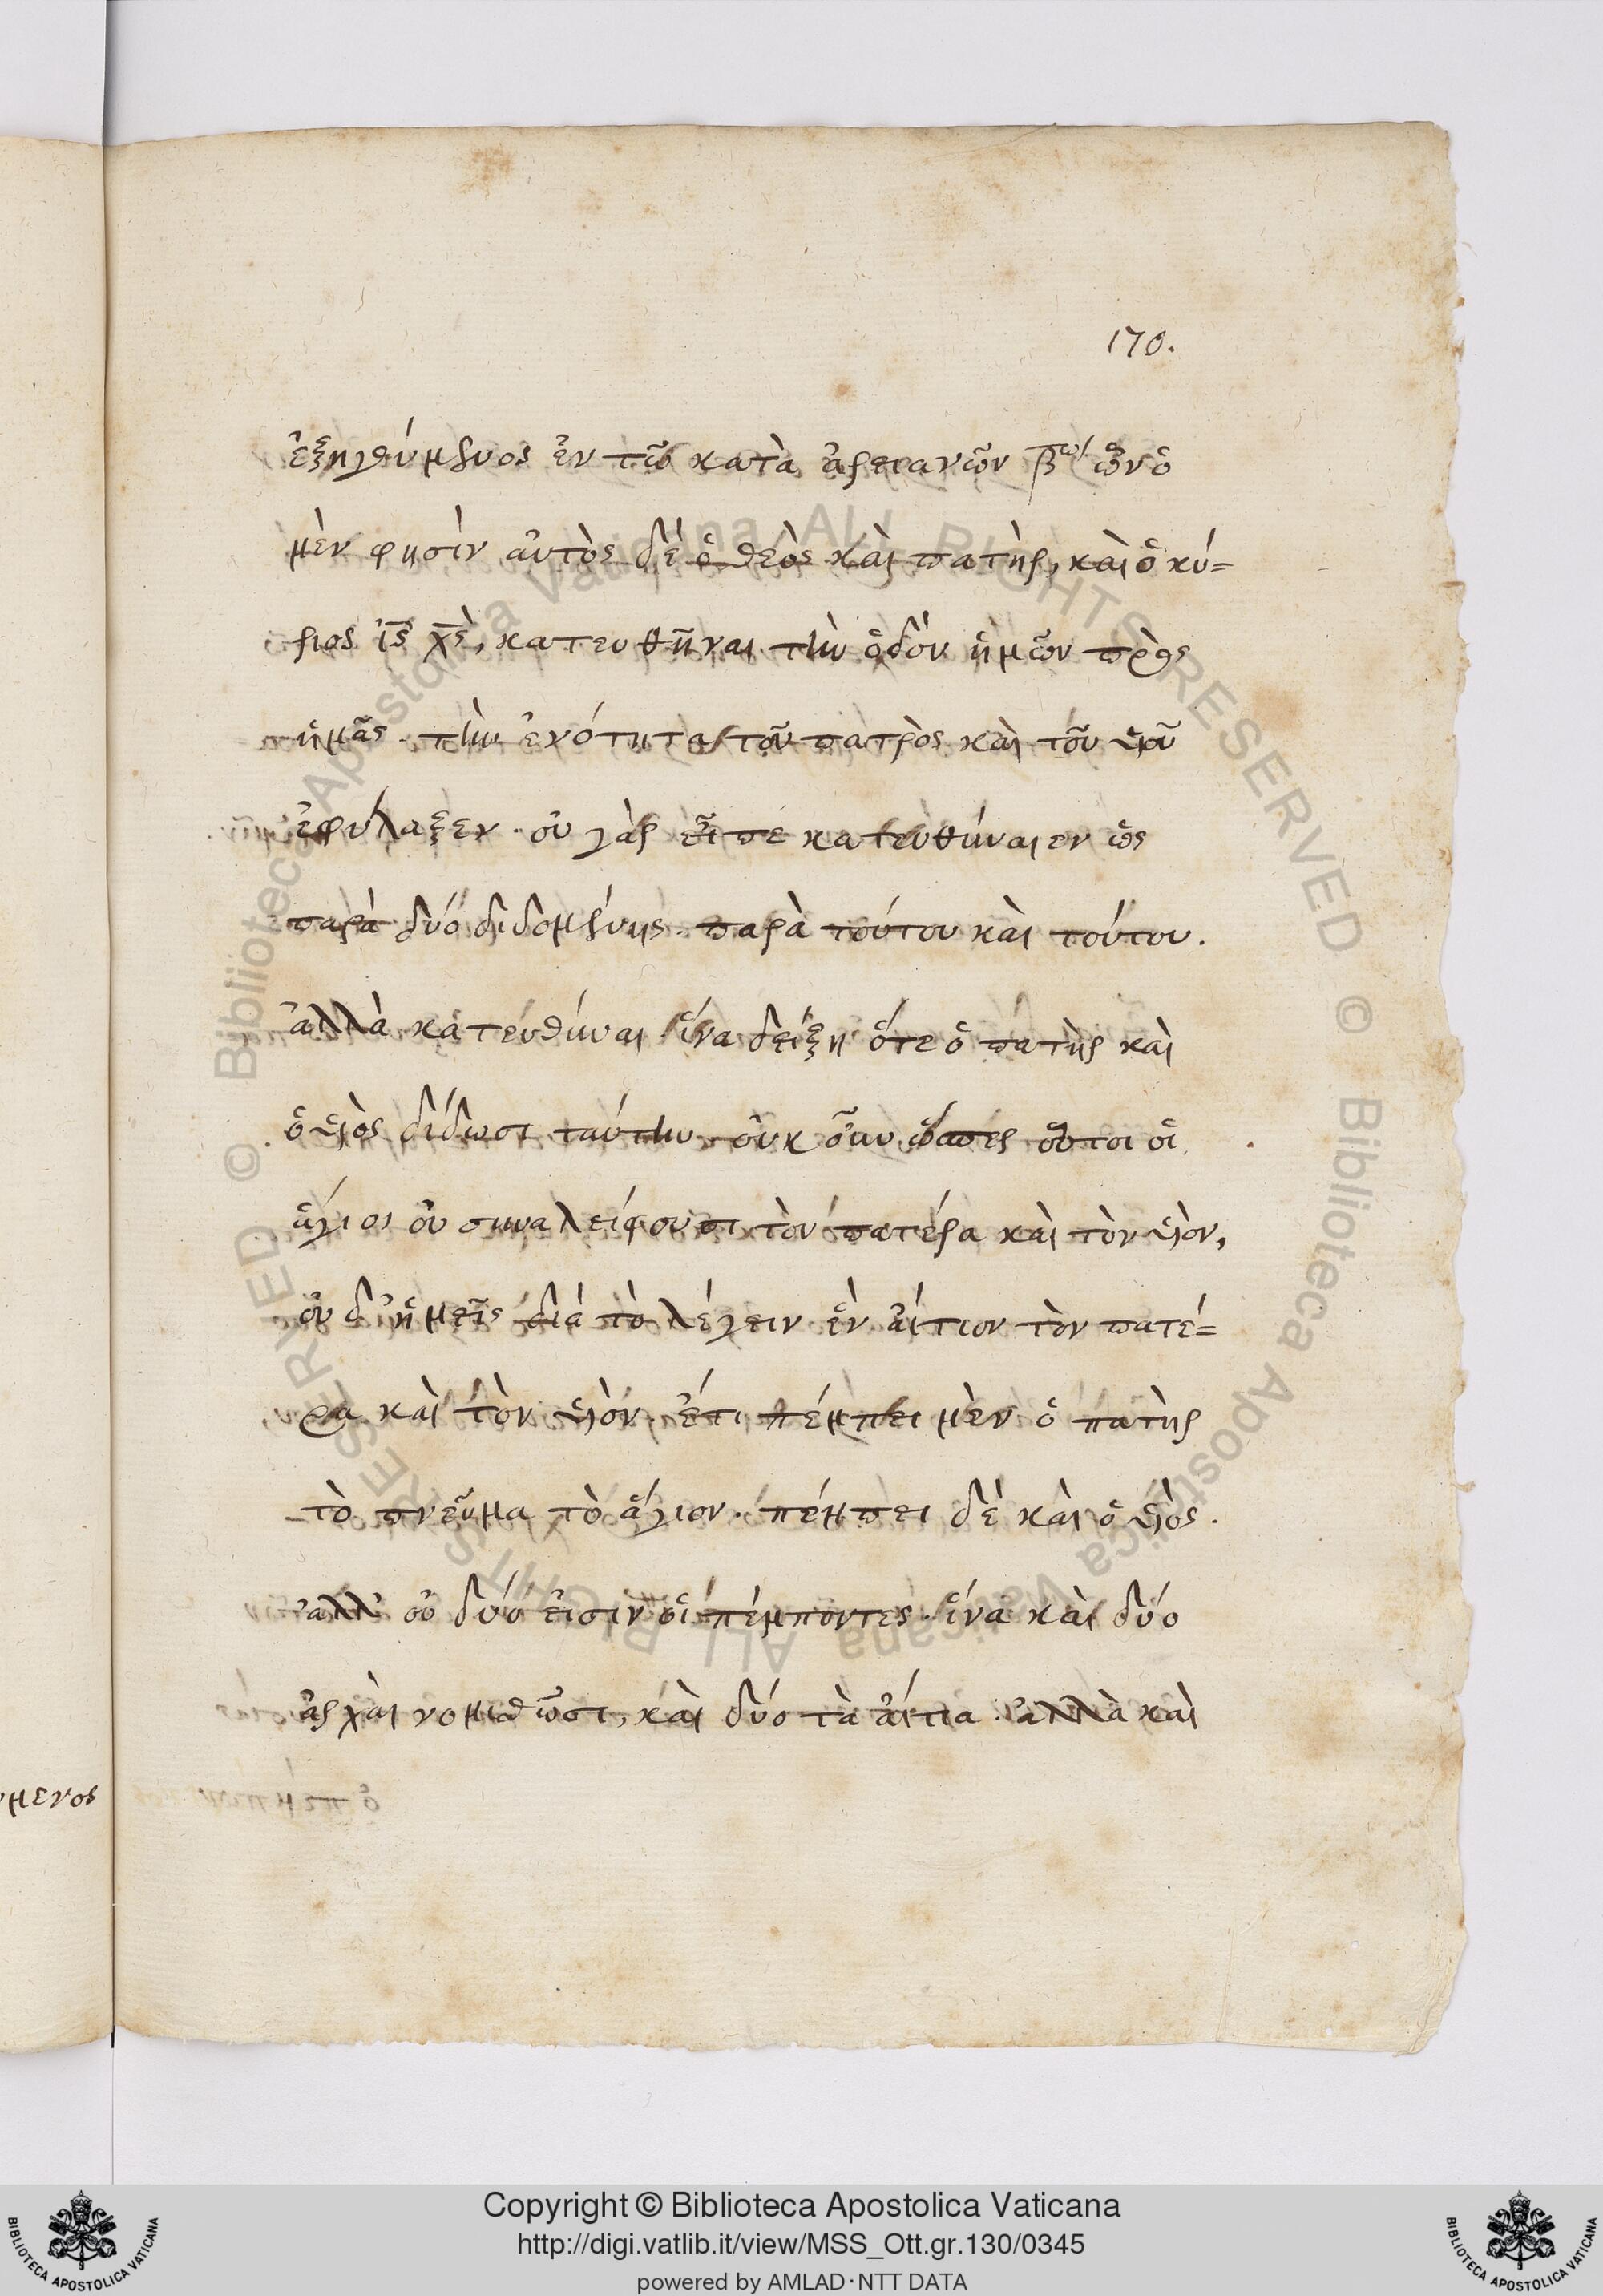 170.
ἐξηγούμενος ἐν τῶ κατὰ ἀρειανῶν βω ὧν ὁ
μὲν φησὶν αὐτὸς δὲ ὁ θεὸς καὶ πατὴρ, καὶ ὁ κύ=
ριος ἰς χς, κατευθῆναι τὴν ὁδὸν ἡμῶν πρὸς
ἡμᾶς. τὴν ἑνότητα τοῦ πατρὸς καὶ τοῦ υἱοῦ
ἐφύλαξεν. οὐ γὰρ εἶπε κατευθύναιεν ὡς
παρὰ δύο διδομένης. παρὰ τούτου καὶ τούτου.
ἀλλὰ κατευθύναι ἵνα δείξη ὅτε ὁ πατὴρ καὶ
ὁ υἱὸς δίδωσι ταύτην. οὐκ οὖν ὥσπερ οὗτοι οἱ
ἅγιοι οὐ συναλείφουσι τὸν πατέρα καὶ τὸν υἱὸν,
οὐδ' ἡμεῖς διὰ τὸ λέγειν ἓν αἴτιον τὸν πατέ=
ρα καὶ τὸν υἱὸν. ἔτι πέμπει μὲν ὁ πατὴρ
τὸ πνεῦμα τὸ ἅγιον. πέμπει δὲ καὶ ὁ υἱὸς.
ἀλλ' οὐ δύο εἰσὶν οἱ πέμποντες. ἵνα καὶ δύο
ἀρχαὶ νομισθῶσι, καὶ δύο τὰ αἴτια. ἀλλὰ καὶ
μενος
© Biblioteca Apostolica Vaticana ALL RIGHTS RESERVED © Biblioteca Apostolica Vaticana ALL RIGHTS RESERVED
BIBLIOTECA APOSTOLICA VATICANA
Copyright © Biblioteca Apostolica Vaticana
http://digi.vatlib.it/view/MSS_Ott.gr.130/0345
powered by AMLAD·NTT DATA
BIBLIOTECA APOSTOLICA VATICANA